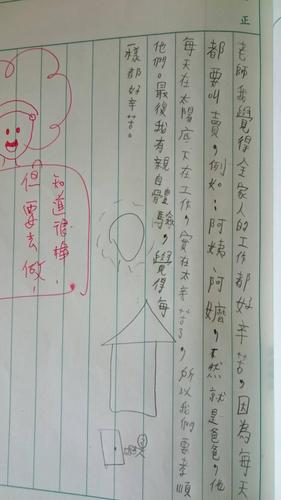 正
老師我覺得全家人的工作都好辛苦，因為每天
都要叫賣，例如：阿姨、阿嬤，不然就是爸爸，他
每天在太陽底下在工作，實在太辛苦了，所以我們要孝順
他們。最後我有親自體驗，覺得每
樣都好辛苦。
知道很棒，
但要去做，